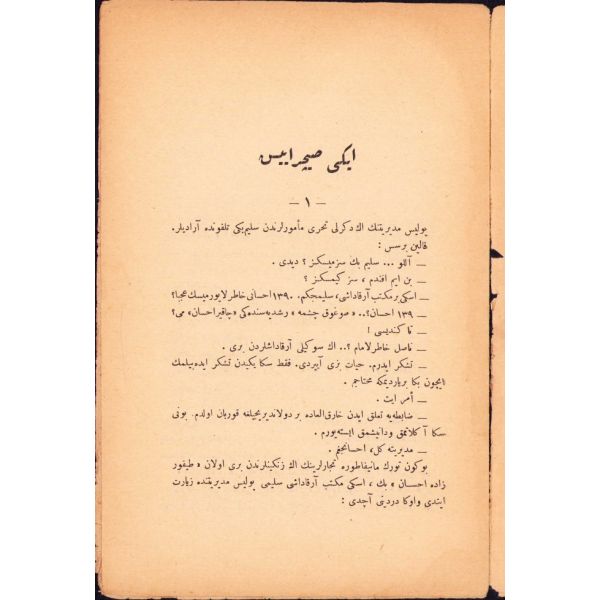 ایکی صیچرایيس
— ١ —
پولیس مدیریتنك اك دكرلی تحری مأمورلرندن سلیم بكی تلفونده آرادیلر.
قالین برسس :
— آللو ... سلیم بك سزمیسكز ؟ دیدی .
— بن ایم افندم ، سز كیمسكز ؟
— اسكی برمكتب آرقاداشی، سلیمجكم. ١٣٩٠ احسانی خاطرلایورمیسك عجبا؟
— ١٣٩٠ احسان؟.. «صوغوق چشمه» رشدیه‌سنده‌كی «چاقیر احسان» می؟
— تا كندیسی !
— ناصل خاطرلامام ؟.. اك سوكیلی آرقاداشلردن بری .
— تشكر ایدرم. حیات بزی آیردی. فقط سكا یكیدن تشكر ایده‌بیلمك
ایچون بكا بریاردیمكه محتاجم .
— أمر ایت .
— ضابطه‌یه تعلق ایدن خارق‌العاده بر دولاندیریجیلغه قوربان اولدم. بونی
سكا آكلاتمق ودانیشمق ایسته‌یورم .
— مدیریته كل، احسانجغم .
بوكون تورك مانیفاطوره تجارلرینك اك زنكینلرندن بری اولان « طیفور
زاده احسان » بك ، اسكی مكتب آرقاداشی سلیمی پولیس مدیریتنده زیارت
ایتدی واوكا دردینی آچدی :